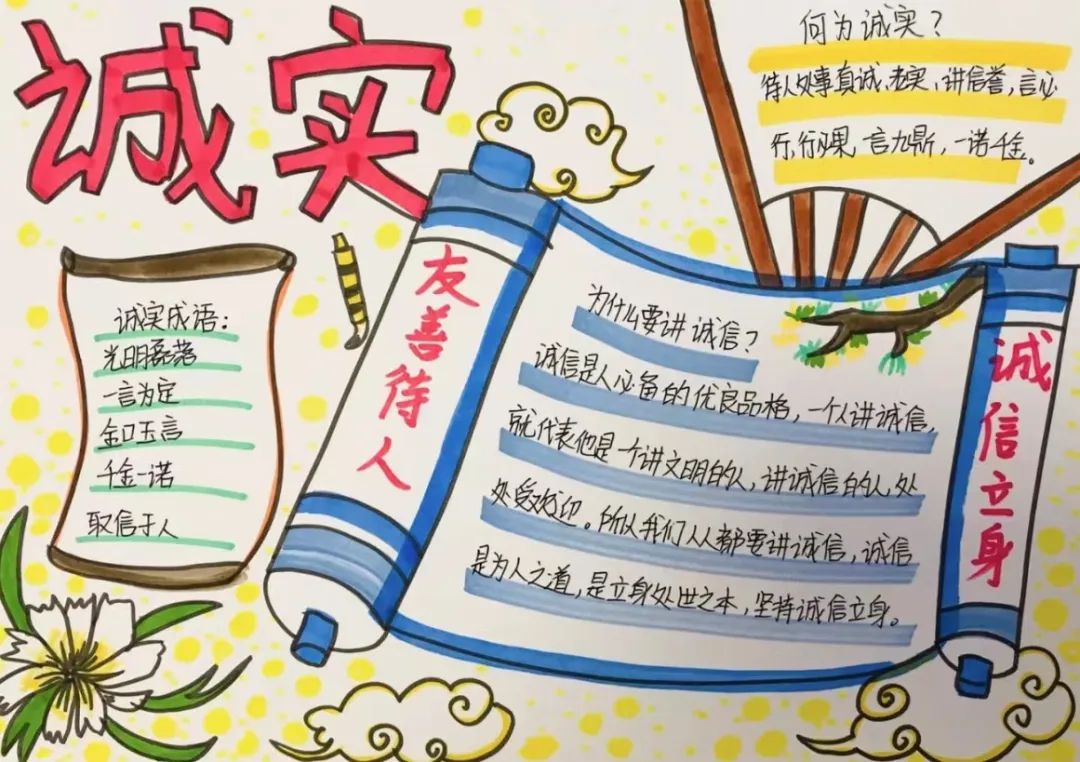 诚实
何为诚实？
待人处事真诚、老实、讲信誉，言必
行、行必果，言九鼎，一诺千金。
诚实成语：
光明磊落
一言为定
金口玉言
千金一诺
取信于人
友善待人
为什么要讲诚信？
诚信是人必备的优良品格，一个人讲诚信，
就代表他是一个讲文明的人，讲诚信的人，处
处受欢迎。所以我们人人都要讲诚信，诚信
是为人之道，是立身处世之本，坚持诚信立身。
诚信立身